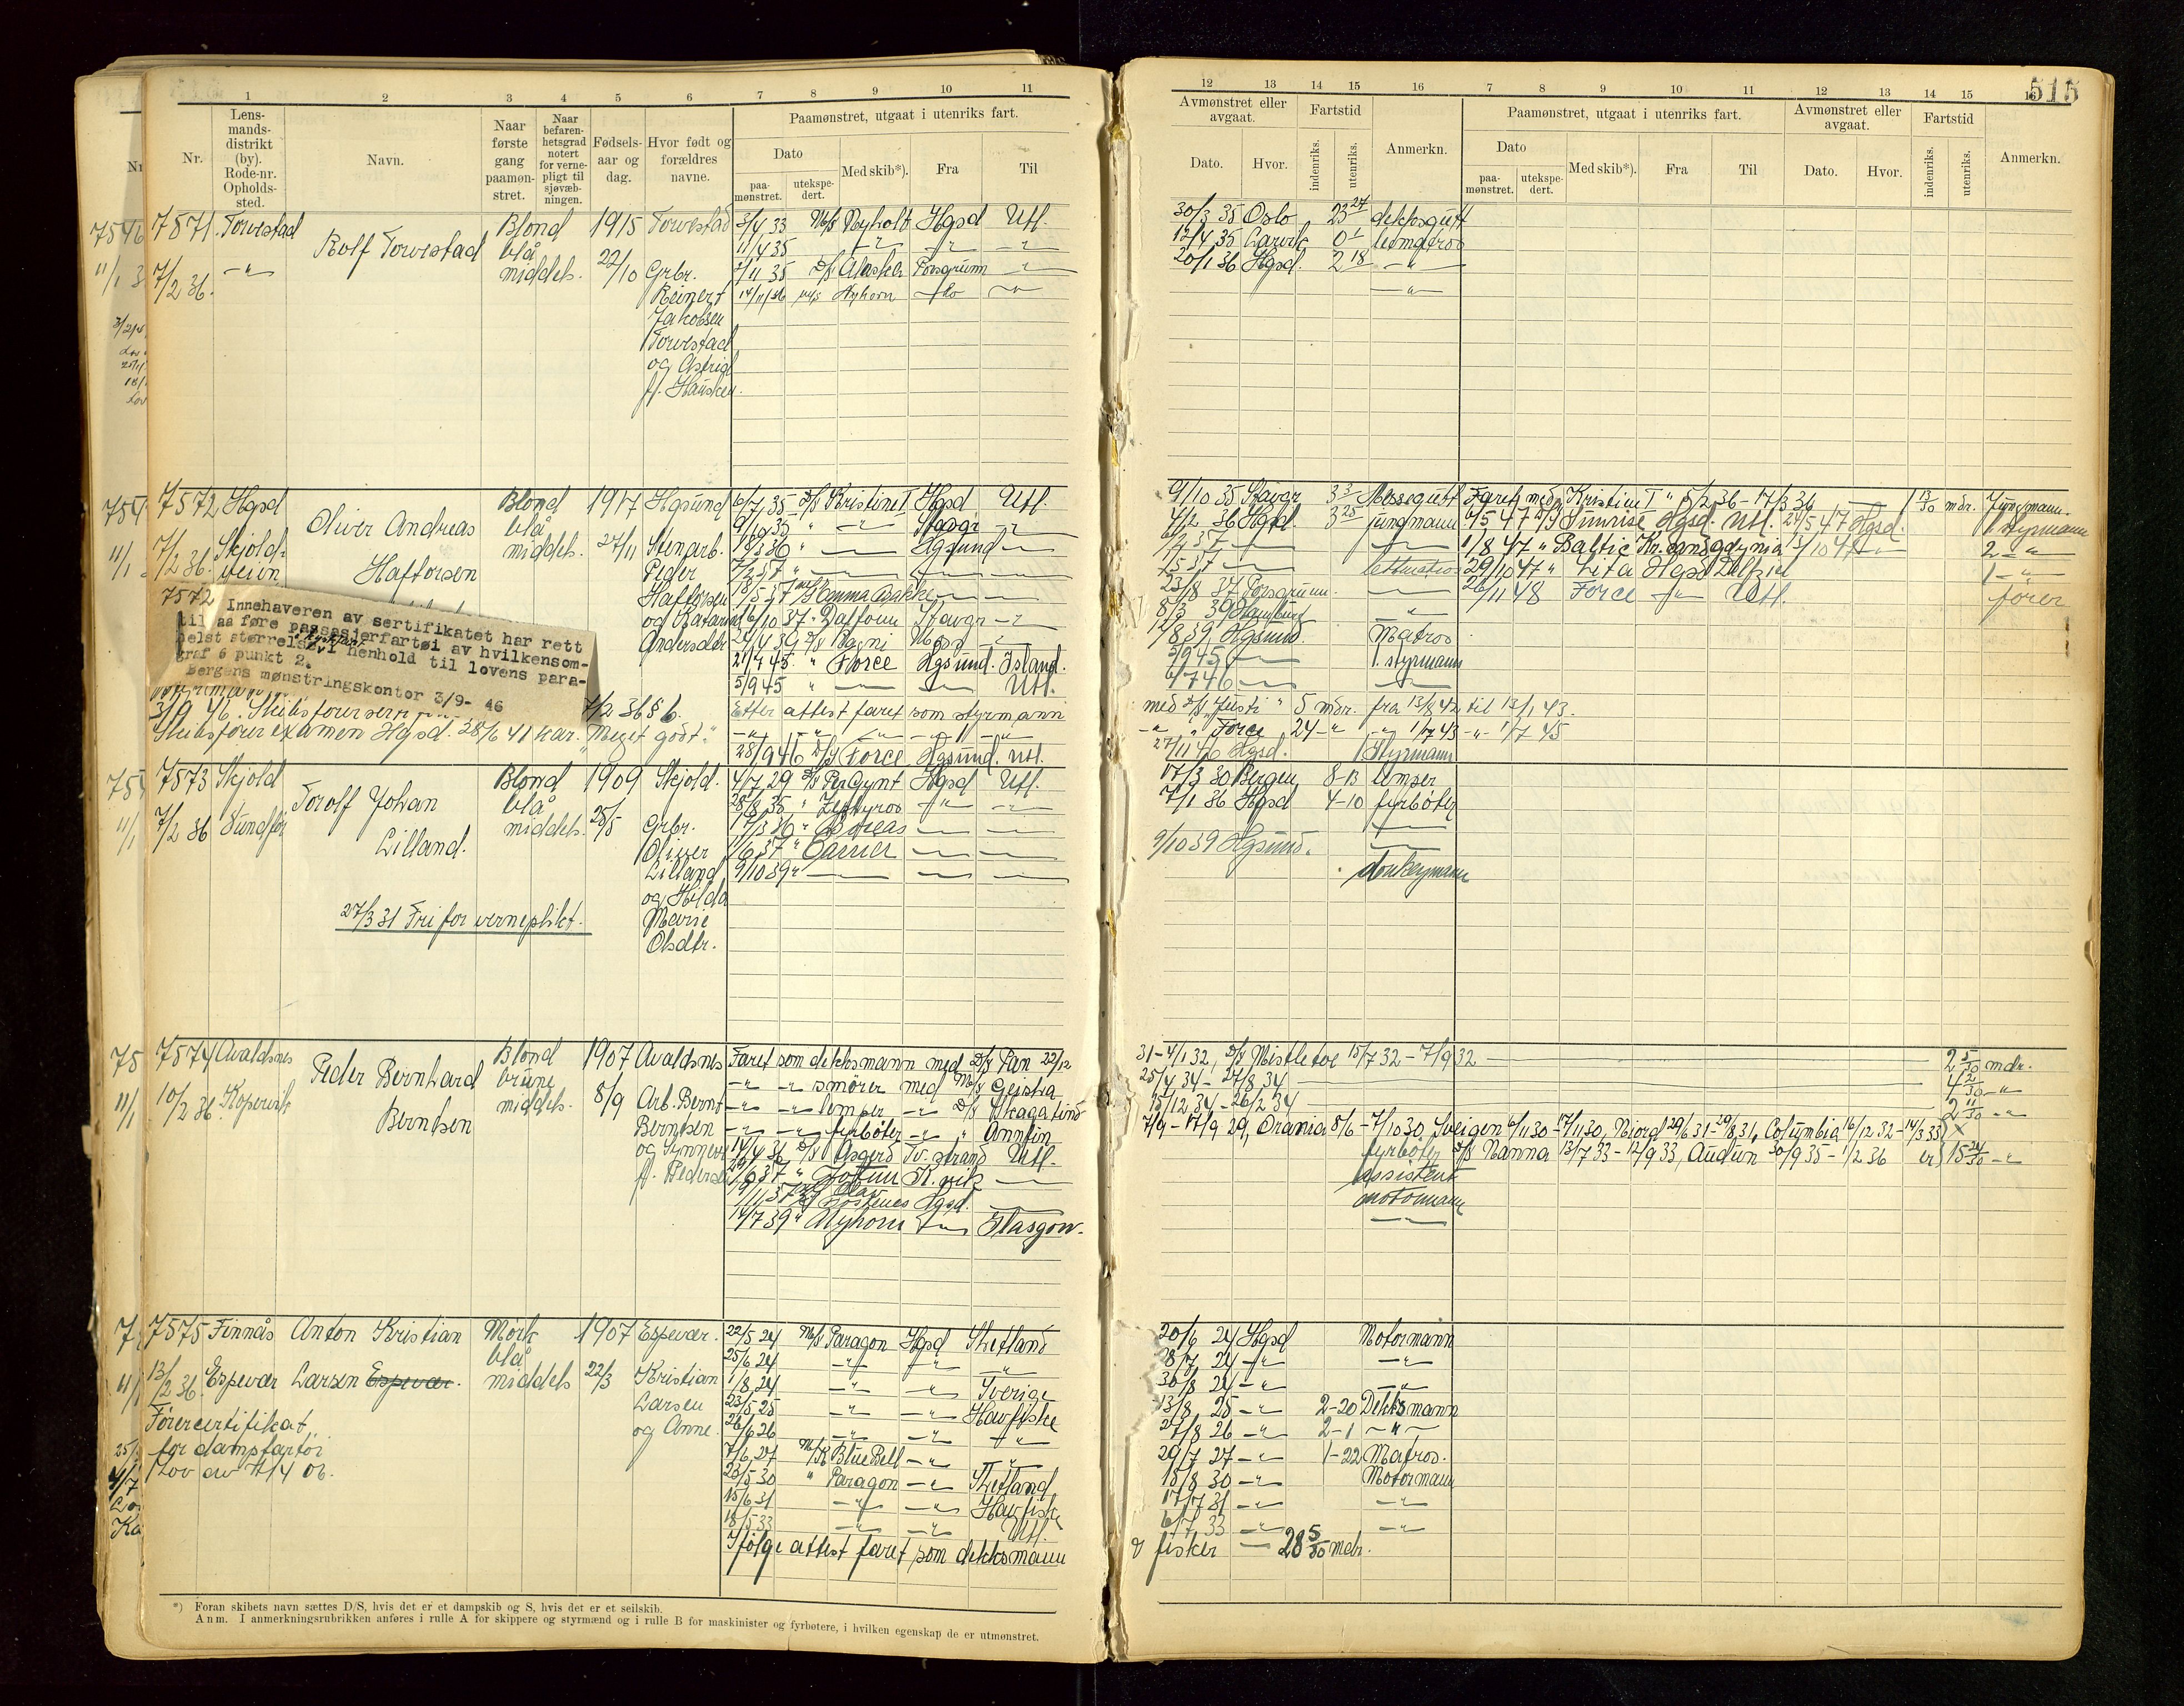 515
1 2 3 4 5 6 7 8 9 10 11
Nr. Lensmandsdistrikt (by). Rode-nr. Opholdssted. Navn. Naar første gang paamønstret. Naar befarenhetsgrad notert for vernepligt til sjøvæbningen. Fødselsaar og dag. Hvor født og forældres navne.
Paamønstret, utgaat i utenriks fart.
Dato paamønstret. utekspedert. Med skib*). Fra Til
12 13 14 15 16 7 8 9 10 11 12 13 14 15 16
Avmønstret eller avgaat. Fartstid Paamønstret, utgaat i utenriks fart. Avmønstret eller avgaat. Fartstid
Dato. Hvor. indenriks. utenriks. Anmerkn. Dato paamønstret. utekspedert. Med skib*). Fra Til Dato. Hvor. indenriks. utenriks. Anmerkn.
7571. Torvestad Rolf Torvestad Blond 1915 Torvestad 3/4 33 M/S Nyholt Hgsd Utl. 30/3 35 Oslo 23 27 dekksgutt
blå 1/4 35 12/4 35 Larvik 0 1 letmatros
7/2 36. middels. 22/10 Grbr. 2/11 35 D/S Alaska Porsgrunn 20/1 36 Hgsd. 2 18
Reinert 14/11/36 M/S Høyhorn
Jakobsen
Torvestad
og Astrid
f. Hausken.
7572 Hgsd Oliver Andreas Blond 1917 Hgsund 6/7 35 D/S Kristine I Hgsd Utl. 9/10 35 Stavgr 3 3 Messegutt Faret med Kristine I " 5/2 36 – 17/3 36 13/30 mdr. Jungmann.
Haftorsen blå 9/10 35 Stavgr 4/2 36 Hgsd 3 25 jungmann 6/5 47 D/S Sunrise Hgsd. Utl. 24/5 47 Hgsd. 1 styrmann
7/2 36. Skjoldveien middels. 27/11 Stenarb. Hgsund 1/8 47 " Baltic Kr.sand Gdynia
Peder 29/10 47 " Lita Hgsd Delfziel
Haftorsen 23/8 37 Porsgrunn. 26/11 48 Force Utl. fører
8/3 39 Hamburg
1/8 39 Hgsund. Matros
21/7 45 " Force Hgsund. Island. 5/9 45 1. styrmann
5/9 45 " Utl. 4/7 46
7572
Innehaveren av sertifikatet har rett
til aa føre passasjerfartøi av hvilkensom-
helst størrelse i henhold til lovens para-
graf 6 punkt 2.
Bergens mønstringskontor 3/9- 46
7/2 36 § 6. Etter attest faret som styrmann med D/S Justi " 5 mdr. fra 13/8 42 til 13/1 43.
Force 24 1/7 43 1/7 45
Skibsførerexamen Hgsd. 28/6 41 kar. "Meget godt." 28/9 46 D/S Force Hgsund. Utl. 27/11 46 Hgsd. 1 Styrmann
7573 Skjold Torolf Johan Blond 1909 Skjold. 4/7 29 D/S Per Gynt Hgsd Utl. 17/3 30 Bergen 8-13 lemper
Lilland. blå 28/8 35 " Zephyros 7/1 36 Hgsd 4-10 fyrbøter
7/2 36 Sundfør middels. 25/5 Grbr. 17/3 36 " Boreas
Oliver 1/6 37 " Carrier 9/10 39 Hgsund.
Lilland 9/10 39 " donkeymann
og Hilda
27/3 31 Fri for verneplikt. Marie
Olsdtr.
7574 Avaldsnes Peder Bernhard Blond 1907 Avaldsnes Faret som dekksmann med D/S Pan 22/12 31 – 4/1 32, D/S Mistletoe 15/7 32 – 7/9 32 2 5/30 mdr.
Berntsen brune smører med M/S Geisha 25/4 34 – 27/8 34 4 2/30
10/2 36. Kopervik middels. 8/9 Arb. Bernt lemper D/S Skagatind 15/12 34 – 26/2 34 2 11/30
Berntsen fyrbøter " Annfin 7/9 – 17/9 29, Orania 8/6 – 7/10 30 Sveigen 6/11 30 – 17/11 30, Njord 29/6 31 – 29/8 31, Columbia 16/12 32 – 14/3 33
og Synneve 14/4 36 D/S Asgerd Tv.strand Utl. fyrbøter D/S Nanna 13/7 33 – 12/9 33, Audun 30/9 35 – 1/2 36 15 24/30
f. Pederse " Jotun K.vik assistent
Hgsd. motormann
14/7 39 " Høyhorn Glasgow.
7575 Finnås Anton Kristian Mørk 1907 Espevær. 22/5 24 M/S Paragon Hgsd Shetland 20/6 24 Hgsd Motormann
blå 25/6 24 28/7 24
13/2 36. Espevær Larsen Espevær. middels 22/3 Kristian 1/8 24 Sverige 30/8 24
Larsen 23/5 25 Havfiske 13/8 25 2-20 Dekksmann
Førercertifikat og Anne. 26/6 26 27/8 26 2-1
for dampfartøi 7/6 27 M/K Blue Bell 29/7 27 1-22 Matros.
Lov av 7/4 06. 23/5 30 " Paragon Shetland 15/8 30 Motormann
15/6 31 Havfiske 17/7 31
18/5 33 Utl. 6/7 33
Ifølge attest faret som dekksmann & fisker 28 5/30 mdr.
*) Foran skibets navn sættes D/S, hvis det er et dampskib og S, hvis det er et seilskib.
Anm. I anmerkningsrubrikken anføres i rulle A for skippere og styrmænd og i rulle B for maskinister og fyrbøtere, i hvilken egenskap de er utmønstret.